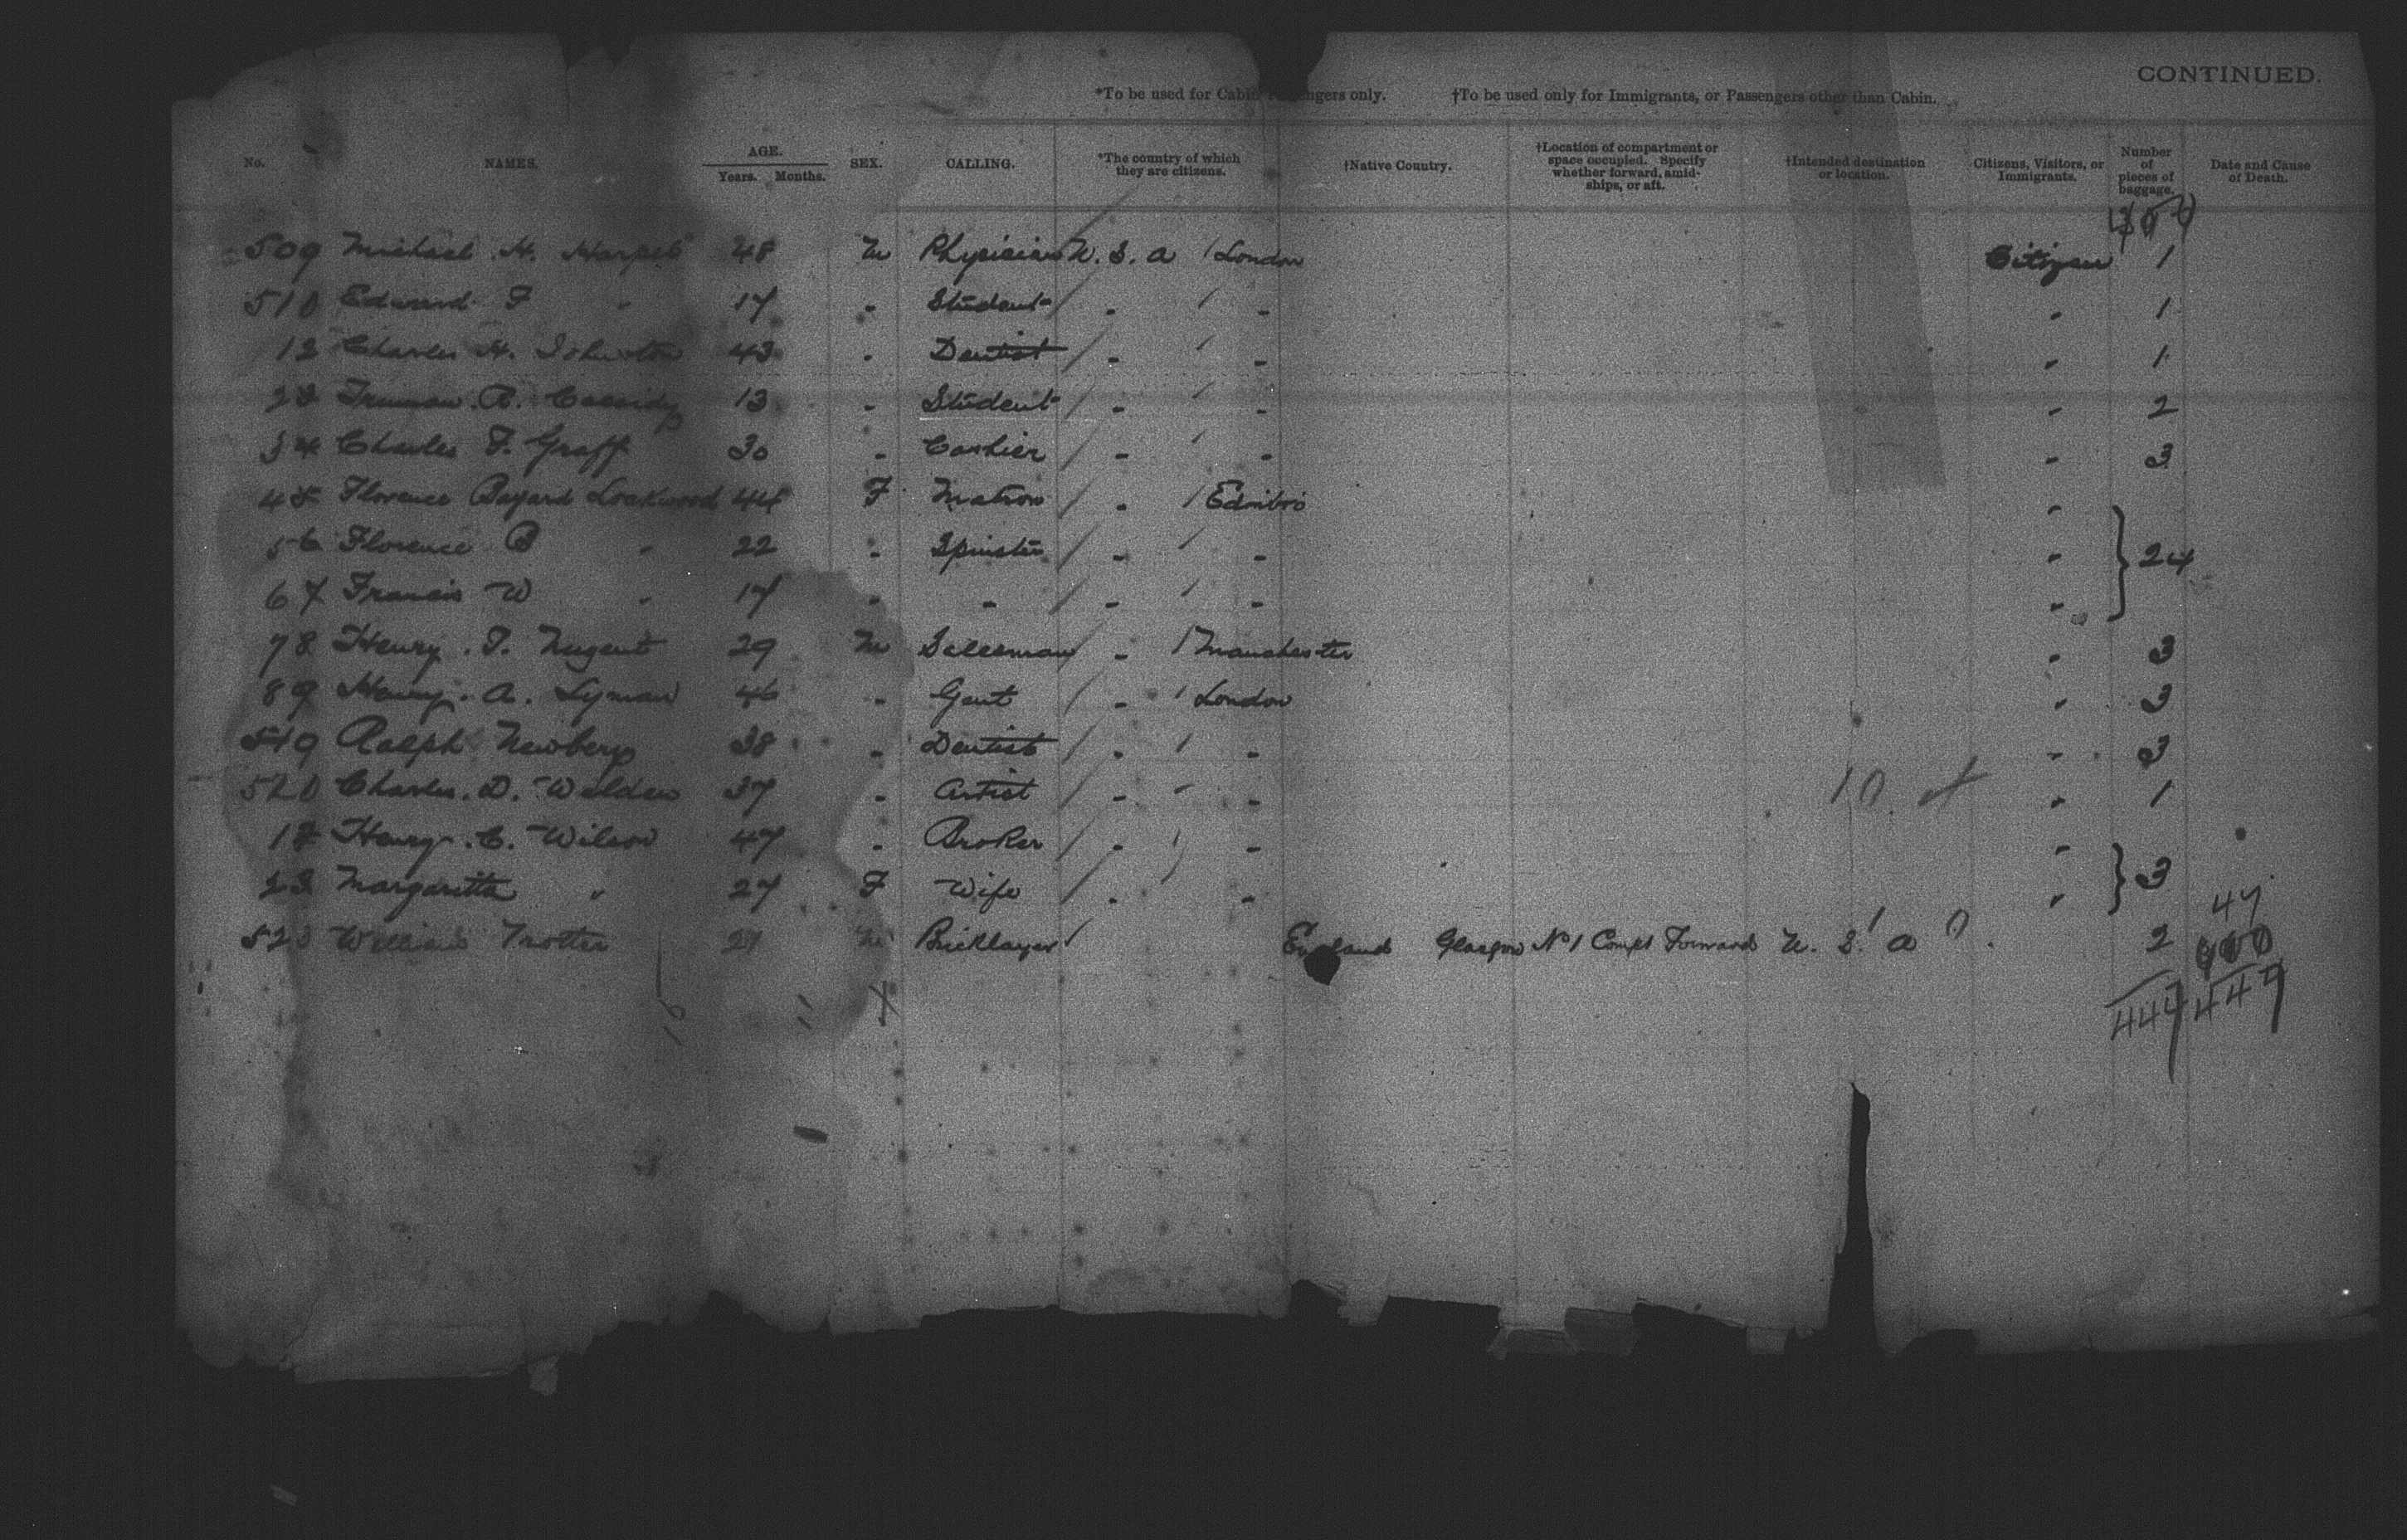 CONTINUED.
*To be used for Cabin Passengers only. †To be used only for Immigrants, or Passengers other than Cabin.
No. NAMES. AGE. Years. Months. SEX. CALLING. *The country of which they are citizens. †Native Country. †Location of compartment or space occupied. Specify whether forward, amidships, or aft. †Intended destination or location. Citizens, Visitors, or Immigrants. Number of pieces of baggage. Date and Cause of Death.
509 Michael H. Harpel 48 M Physician U. S. A London Citizen 1
510 Edward F " 17 " Student " " " 1
12 Charles H. Johnston 43 " Dentist " " " 1
23 Truman R. Cassidy 13 " Student " " " 2
34 Charles F. Graff 30 " Cashier " " " 3
45 Florence Bayard Lockwood 44 F Matron " Edinbro "
56 Florence B " 22 " Spinster " " " } 24
67 Francis W " 17 " " " " "
78 Henry . T. Nugent 29 M Salesman " Manchester " 3
89 Henry . A. Lyman 46 " Gent " London " 3
519 Ralph Newbery 38 " Dentist " " " 3
520 Charles . D. Weldon 37 " Artist " " 10 " 1
12 Henry . C. Wilson 47 " Broker " " "
23 Margaretta " 27 F Wife " " " } 3
523 William Trotter 27 M Bricklayer England Glasgow No 1 Compt Forward U. S. A 2
47
447 447